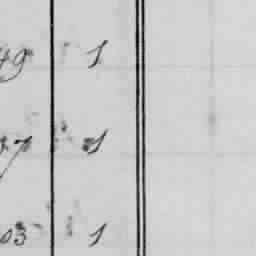 49 1
37 1
03 1